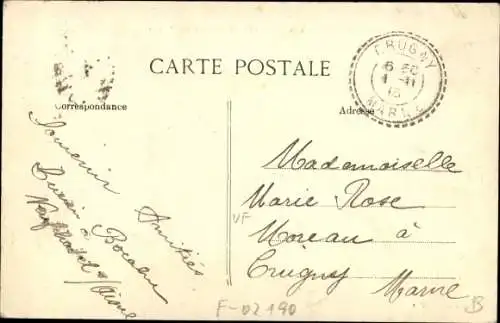 CARTE POSTALE
Correspondance
Adresse
CRUGNY
MARNE
Souvenir Amitiés
Mademoiselle
Marie Rose
Moreau à
Crugny Marne
VF
F-02190
B